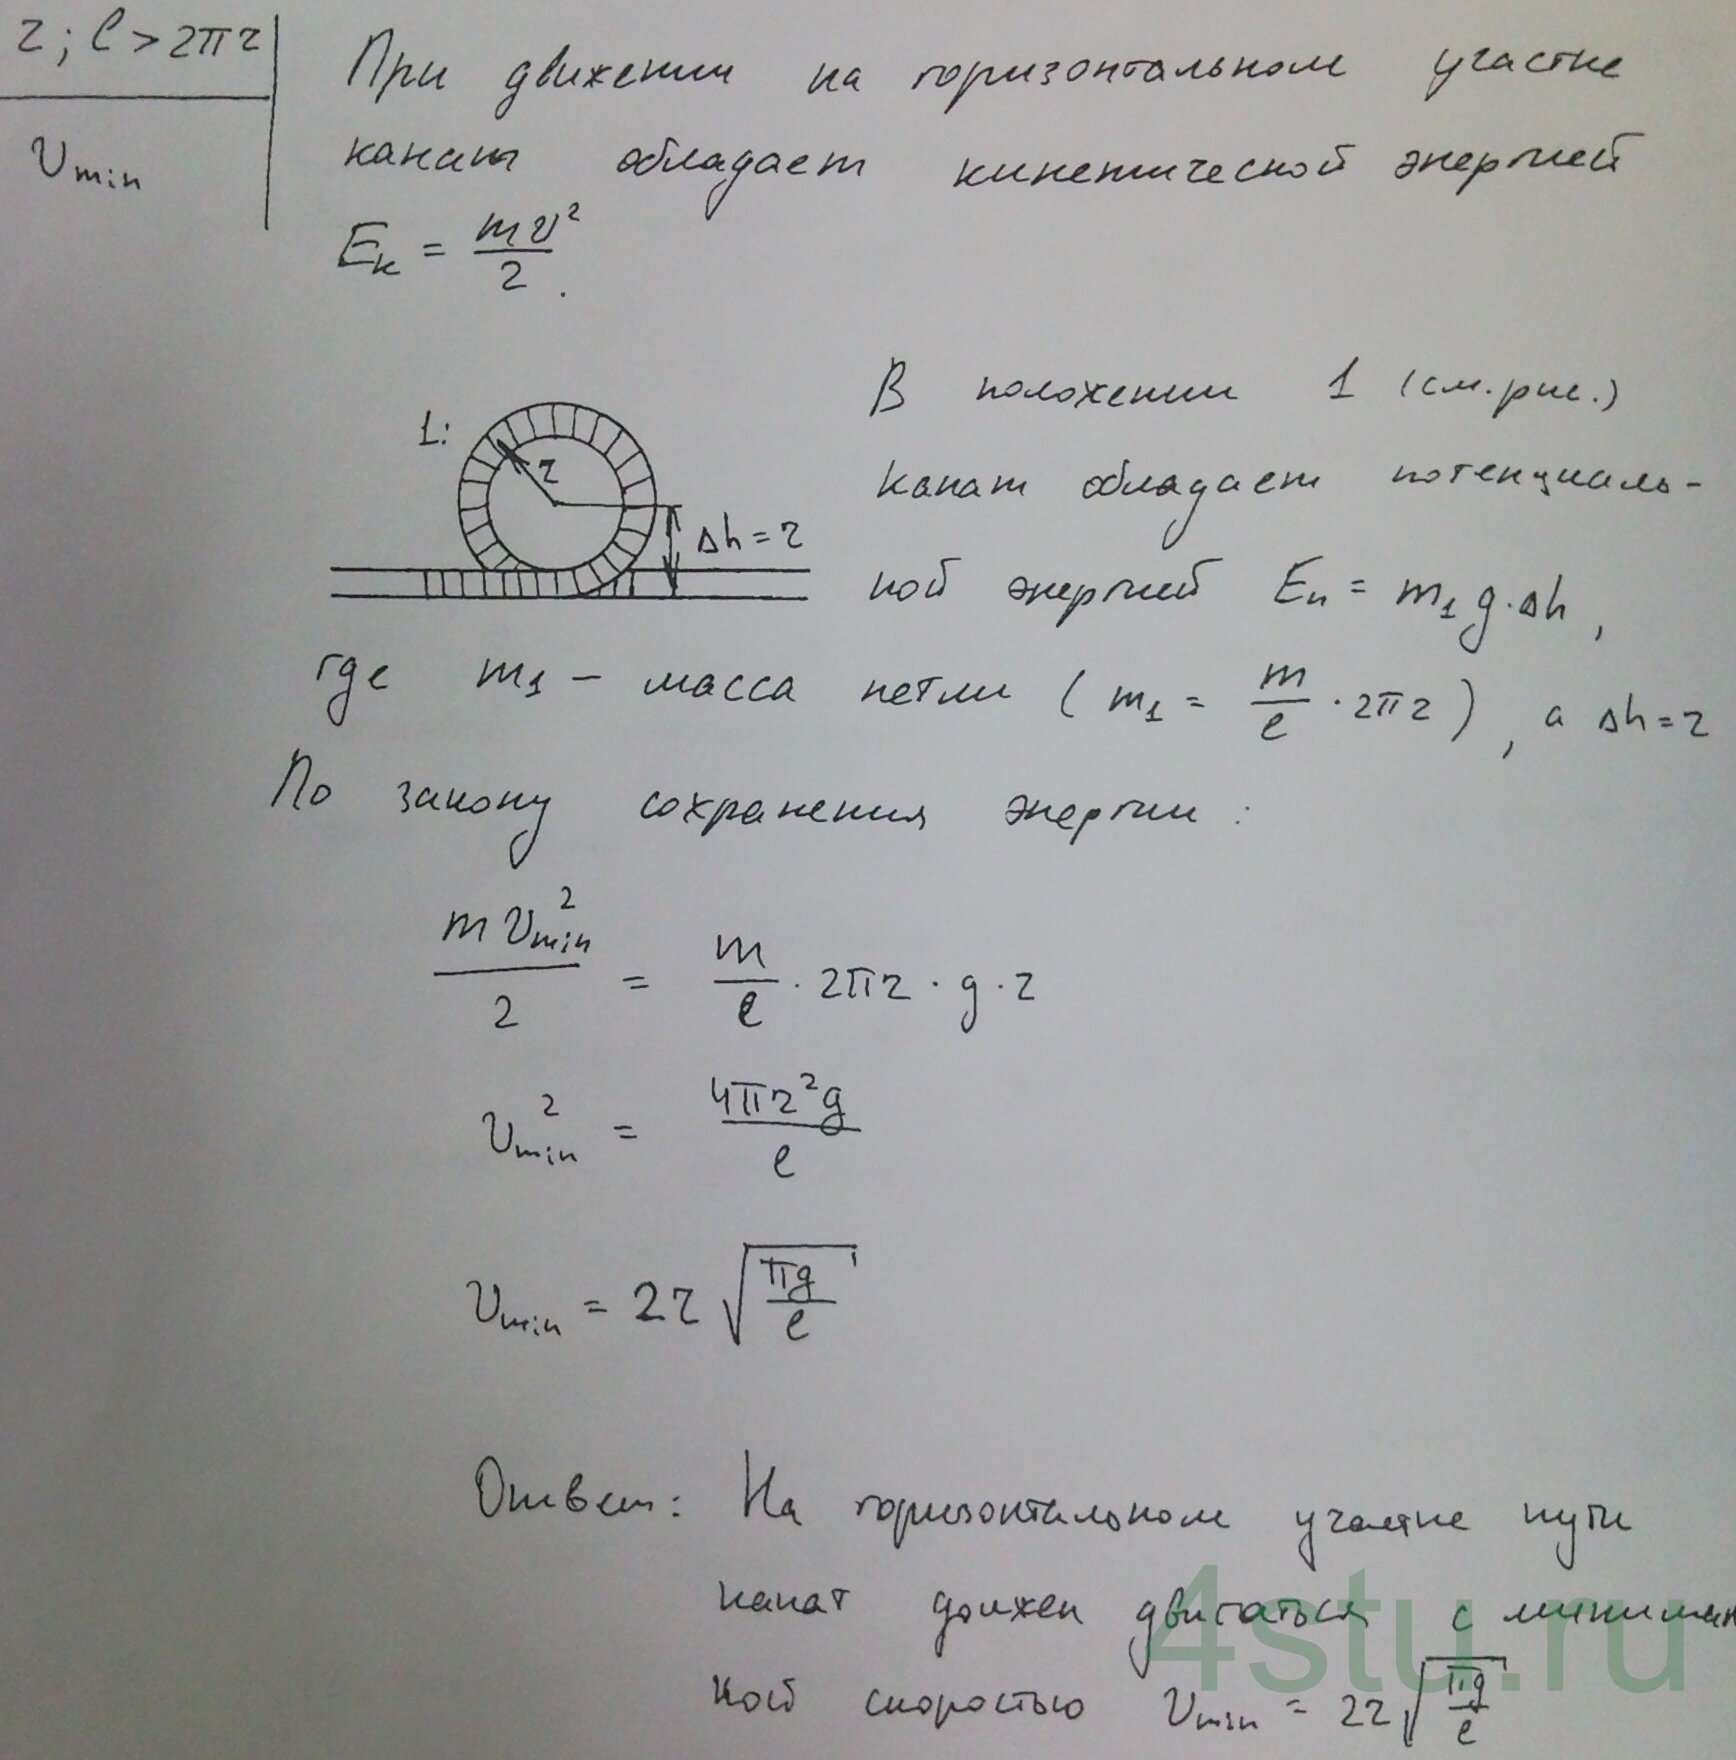 r; l > 2πr
υmin
При движении на горизонтальном участке
канат обладает кинетической энергией
Eк = mυ²/2.
1:
r
Δh = r
В положении 1 (см. рис.)
канат обладает потенциаль-
ной энергией Eп = m₁g·Δh,
где m₁ – масса петли (m₁ = m/l · 2πr), а Δh = r
По закону сохранения энергии:
mυ²min/2 = m/l · 2πr · g · r
υ²min = 4πr²g/l
υmin = 2r√(πg/l)
Ответ: На горизонтальном участке пути
канат должен двигаться с минималь
ной скоростью υmin = 2r√(πg/l)
4stu.ru